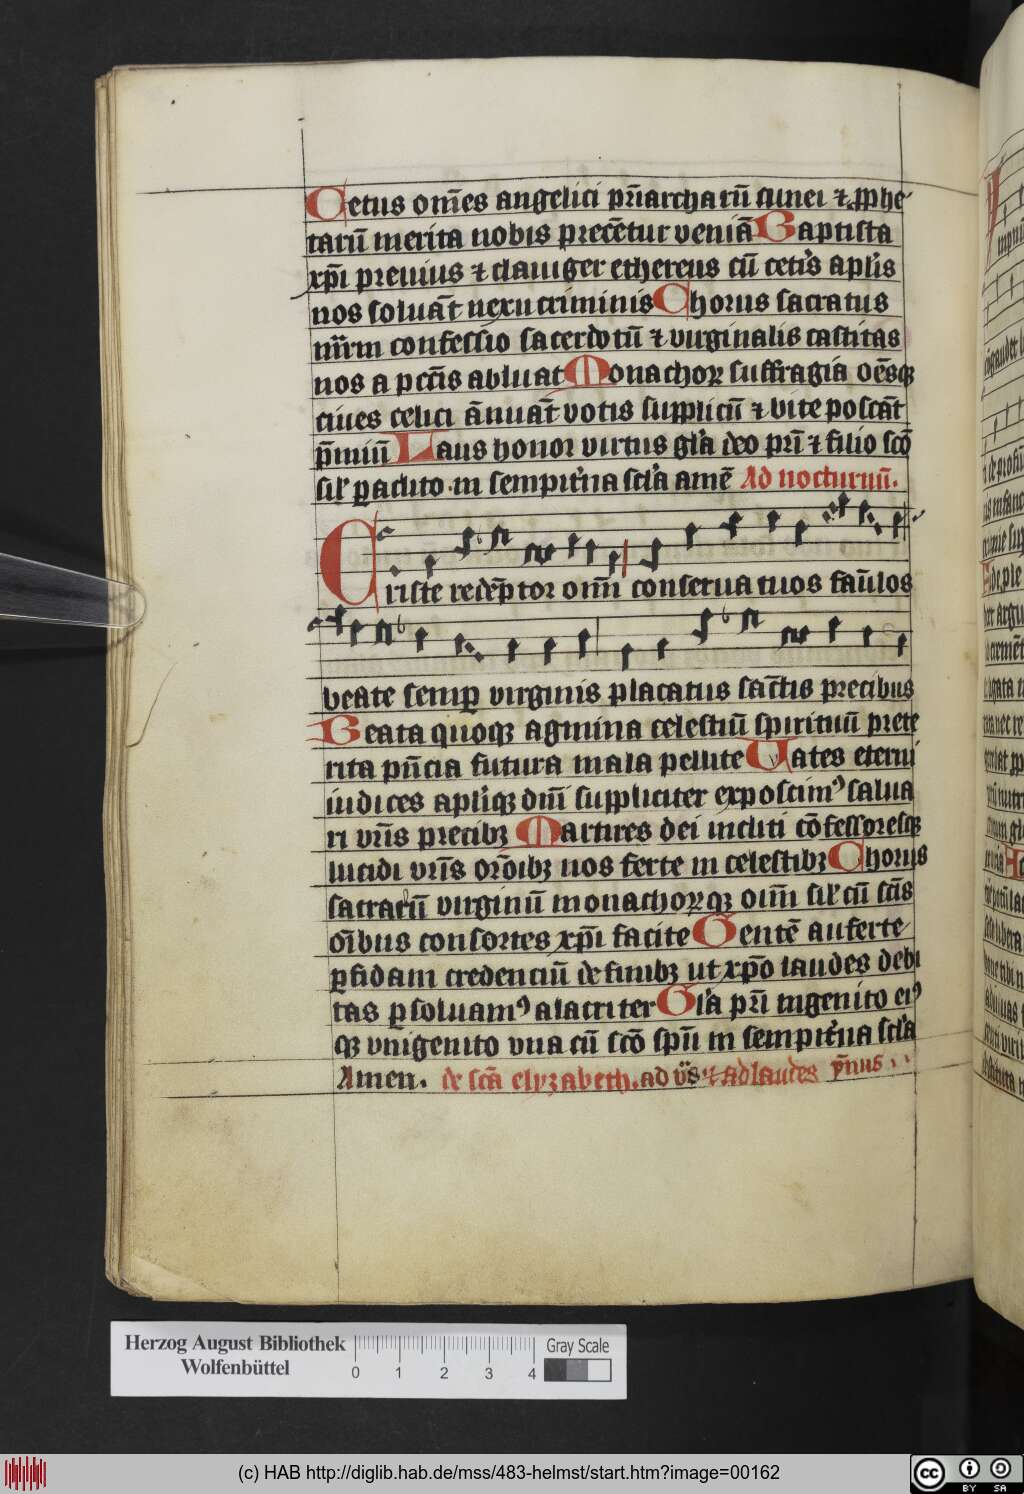 Cetus om̄es angelici pr̄iarcharū cunei ⁊ pphe
tarū merita nobis precēt̄ur veniā Baptista
xp̄i preuius ⁊ clauiger ethereus cū cetīs aplīs
nos soluāt nexu criminis Chorus sacratus
mr̄m confessio sacerdotū ⁊ virginalis castitas
nos a pcc̄is abluat Monachoꝝ suffragia oēsqꝫ
ciues celici ānuāt votis supplicū ⁊ vite poscāt
p̄miū Laus honor virtus glīa deo pr̄i ⁊ filio scō
silr̄ paclito in sempitr̄na scl̄a amē Ad nocturnū.
Criste redēptor om̄i conserua tuos fam̄los
beate semꝑ virginis placatus sāctis precibus
Beata quoqꝫ agmina celestiū spirituū prete
rita pn̄cia futura mala pellite Vates eterni
iudices aplīqꝫ dn̄i suppliciter exposcimꝰ salua
ri vr̄is precibꝫ Martires dei incliti cōfessoresqꝫ
lucidi vr̄is orōibꝫ nos ferte in celestibꝫ Chorus
sacratū virginū monachoꝝqꝫ oim̄ silr̄ cū scīs
oībus consortes xp̄i facite Gentē auferte
ꝑfidam credenciū de finibꝫ ut xp̄o laudes debi
tas ꝑsoluamꝰ alacriter Glīa pr̄i ingenito eiꝰ
qꝫ vnigenito vna cū scō spū in sempitr̄na scl̄a
Amen. de scā elyzabeth. ad vs̄ ⁊ ad laudes pm̄us
Herzog August Bibliothek
Wolfenbüttel
0 1 2 3 4
Gray Scale
(c) HAB http://diglib.hab.de/mss/483-helmst/start.htm?image=00162
cc BY SA